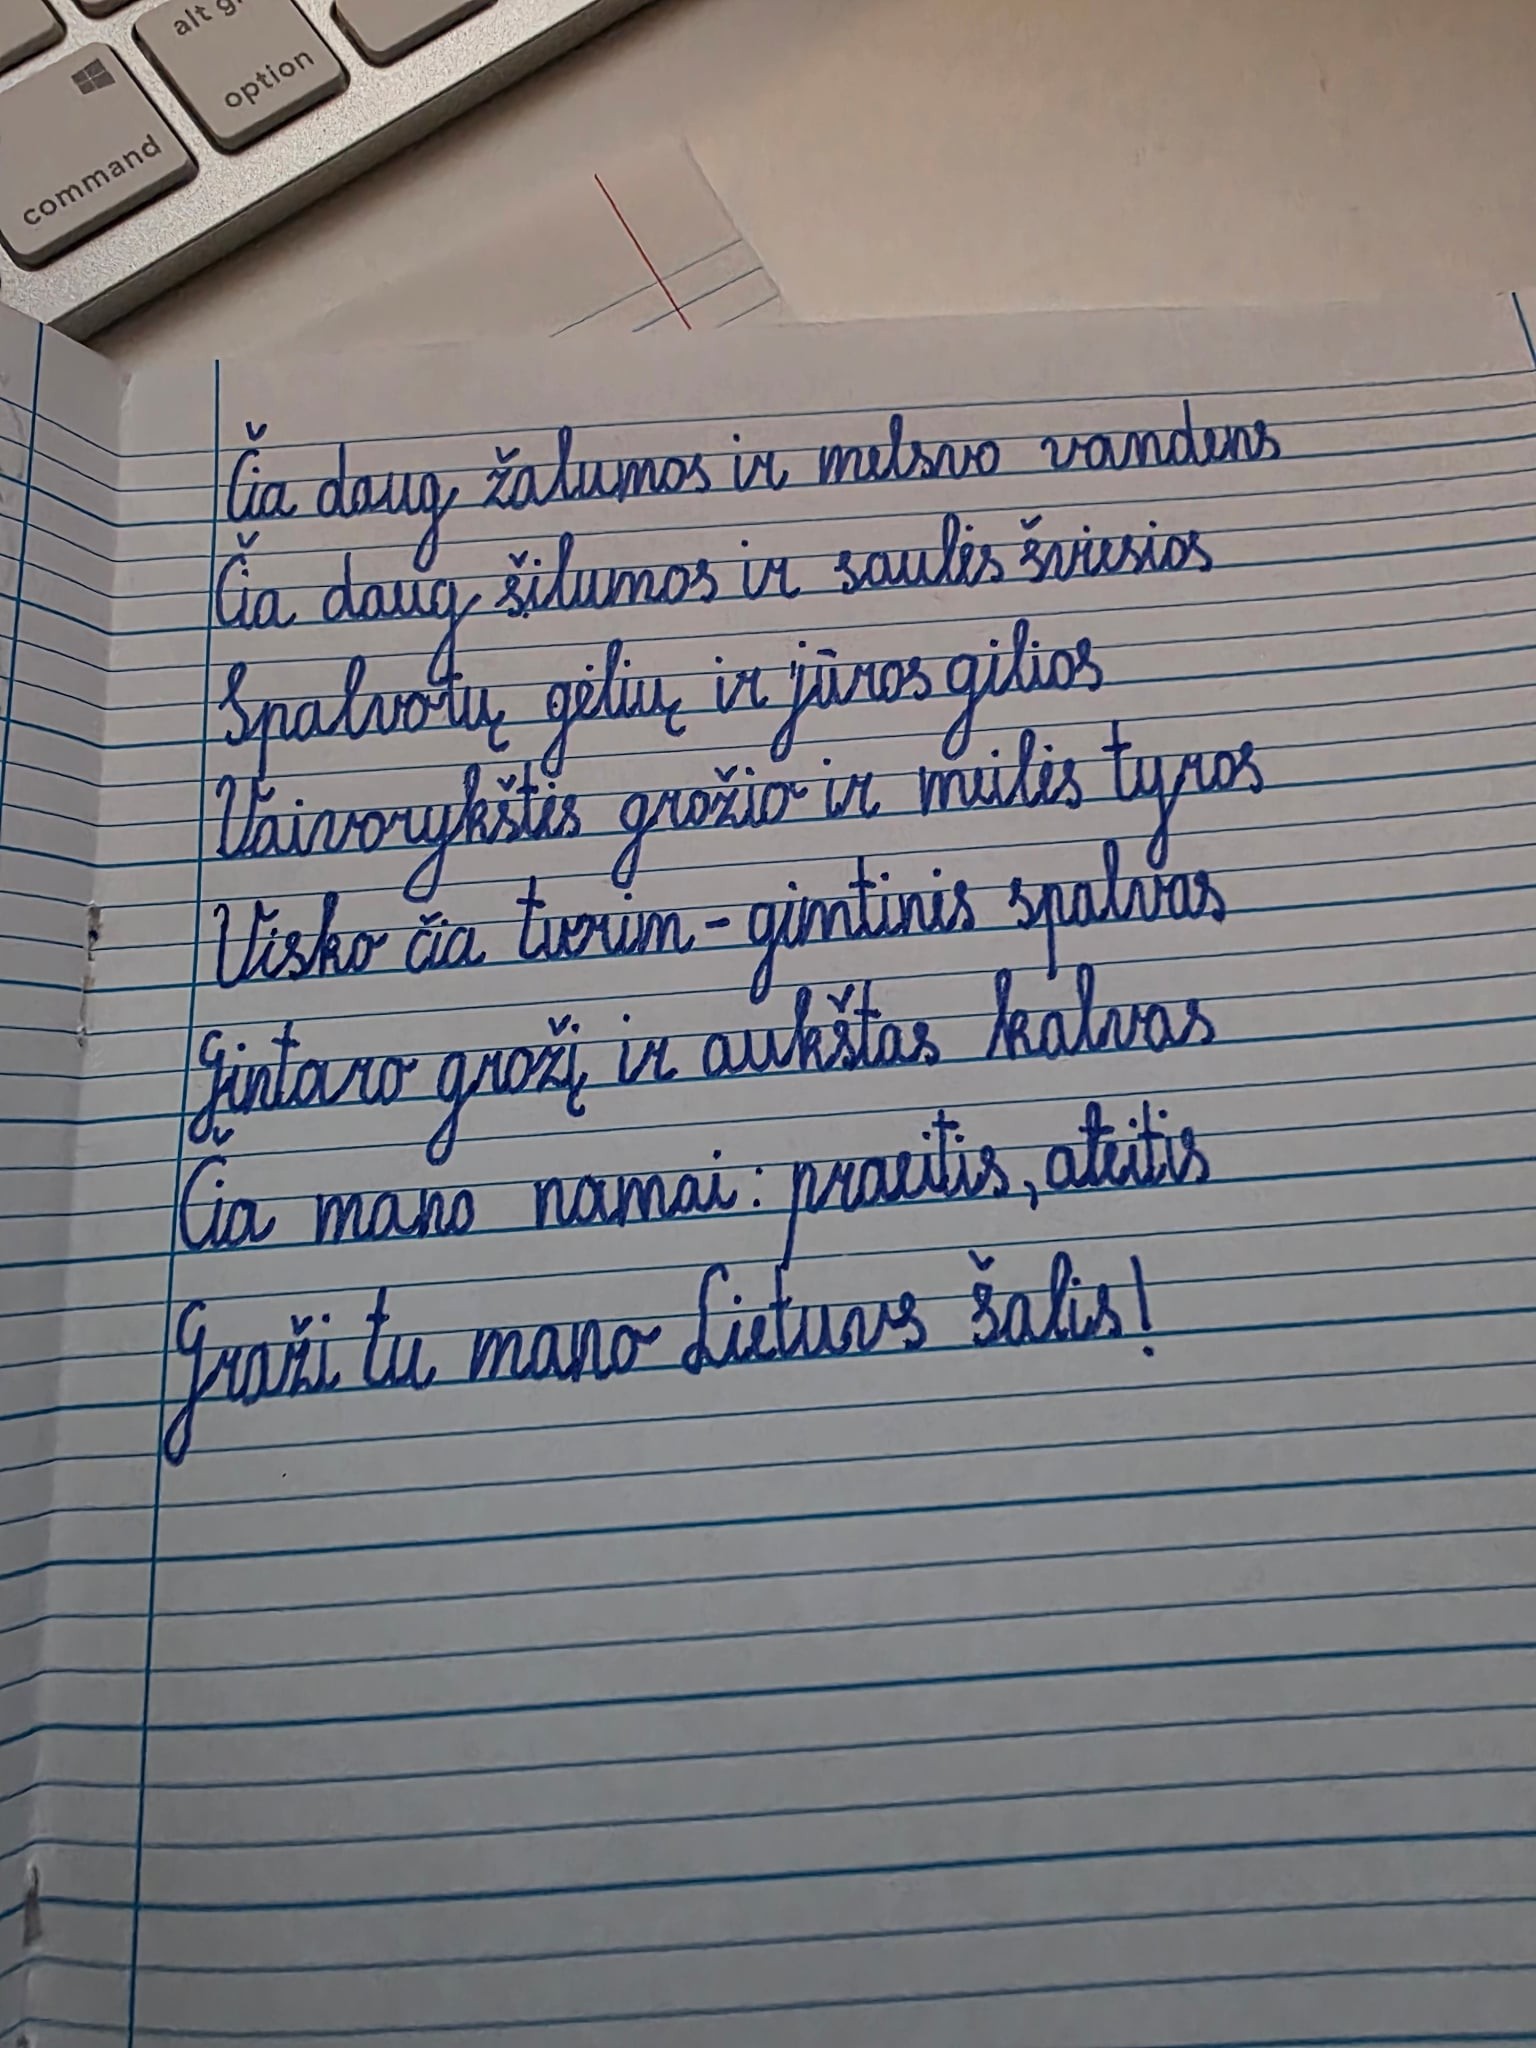 alt g
option
command
Čia daug žalumos ir melsvo vandens
Čia daug šilumos ir saulės šviesios
Spalvotų gėlių ir jūros gilios
Vaivorykštės grožio ir meilės tyros
Visko čia turim - gimtinės spalvas
Gintaro grožį ir aukštas kalvas
Čia mano namai: praeitis, ateitis
Graži tu mano Lietuvos šalis!